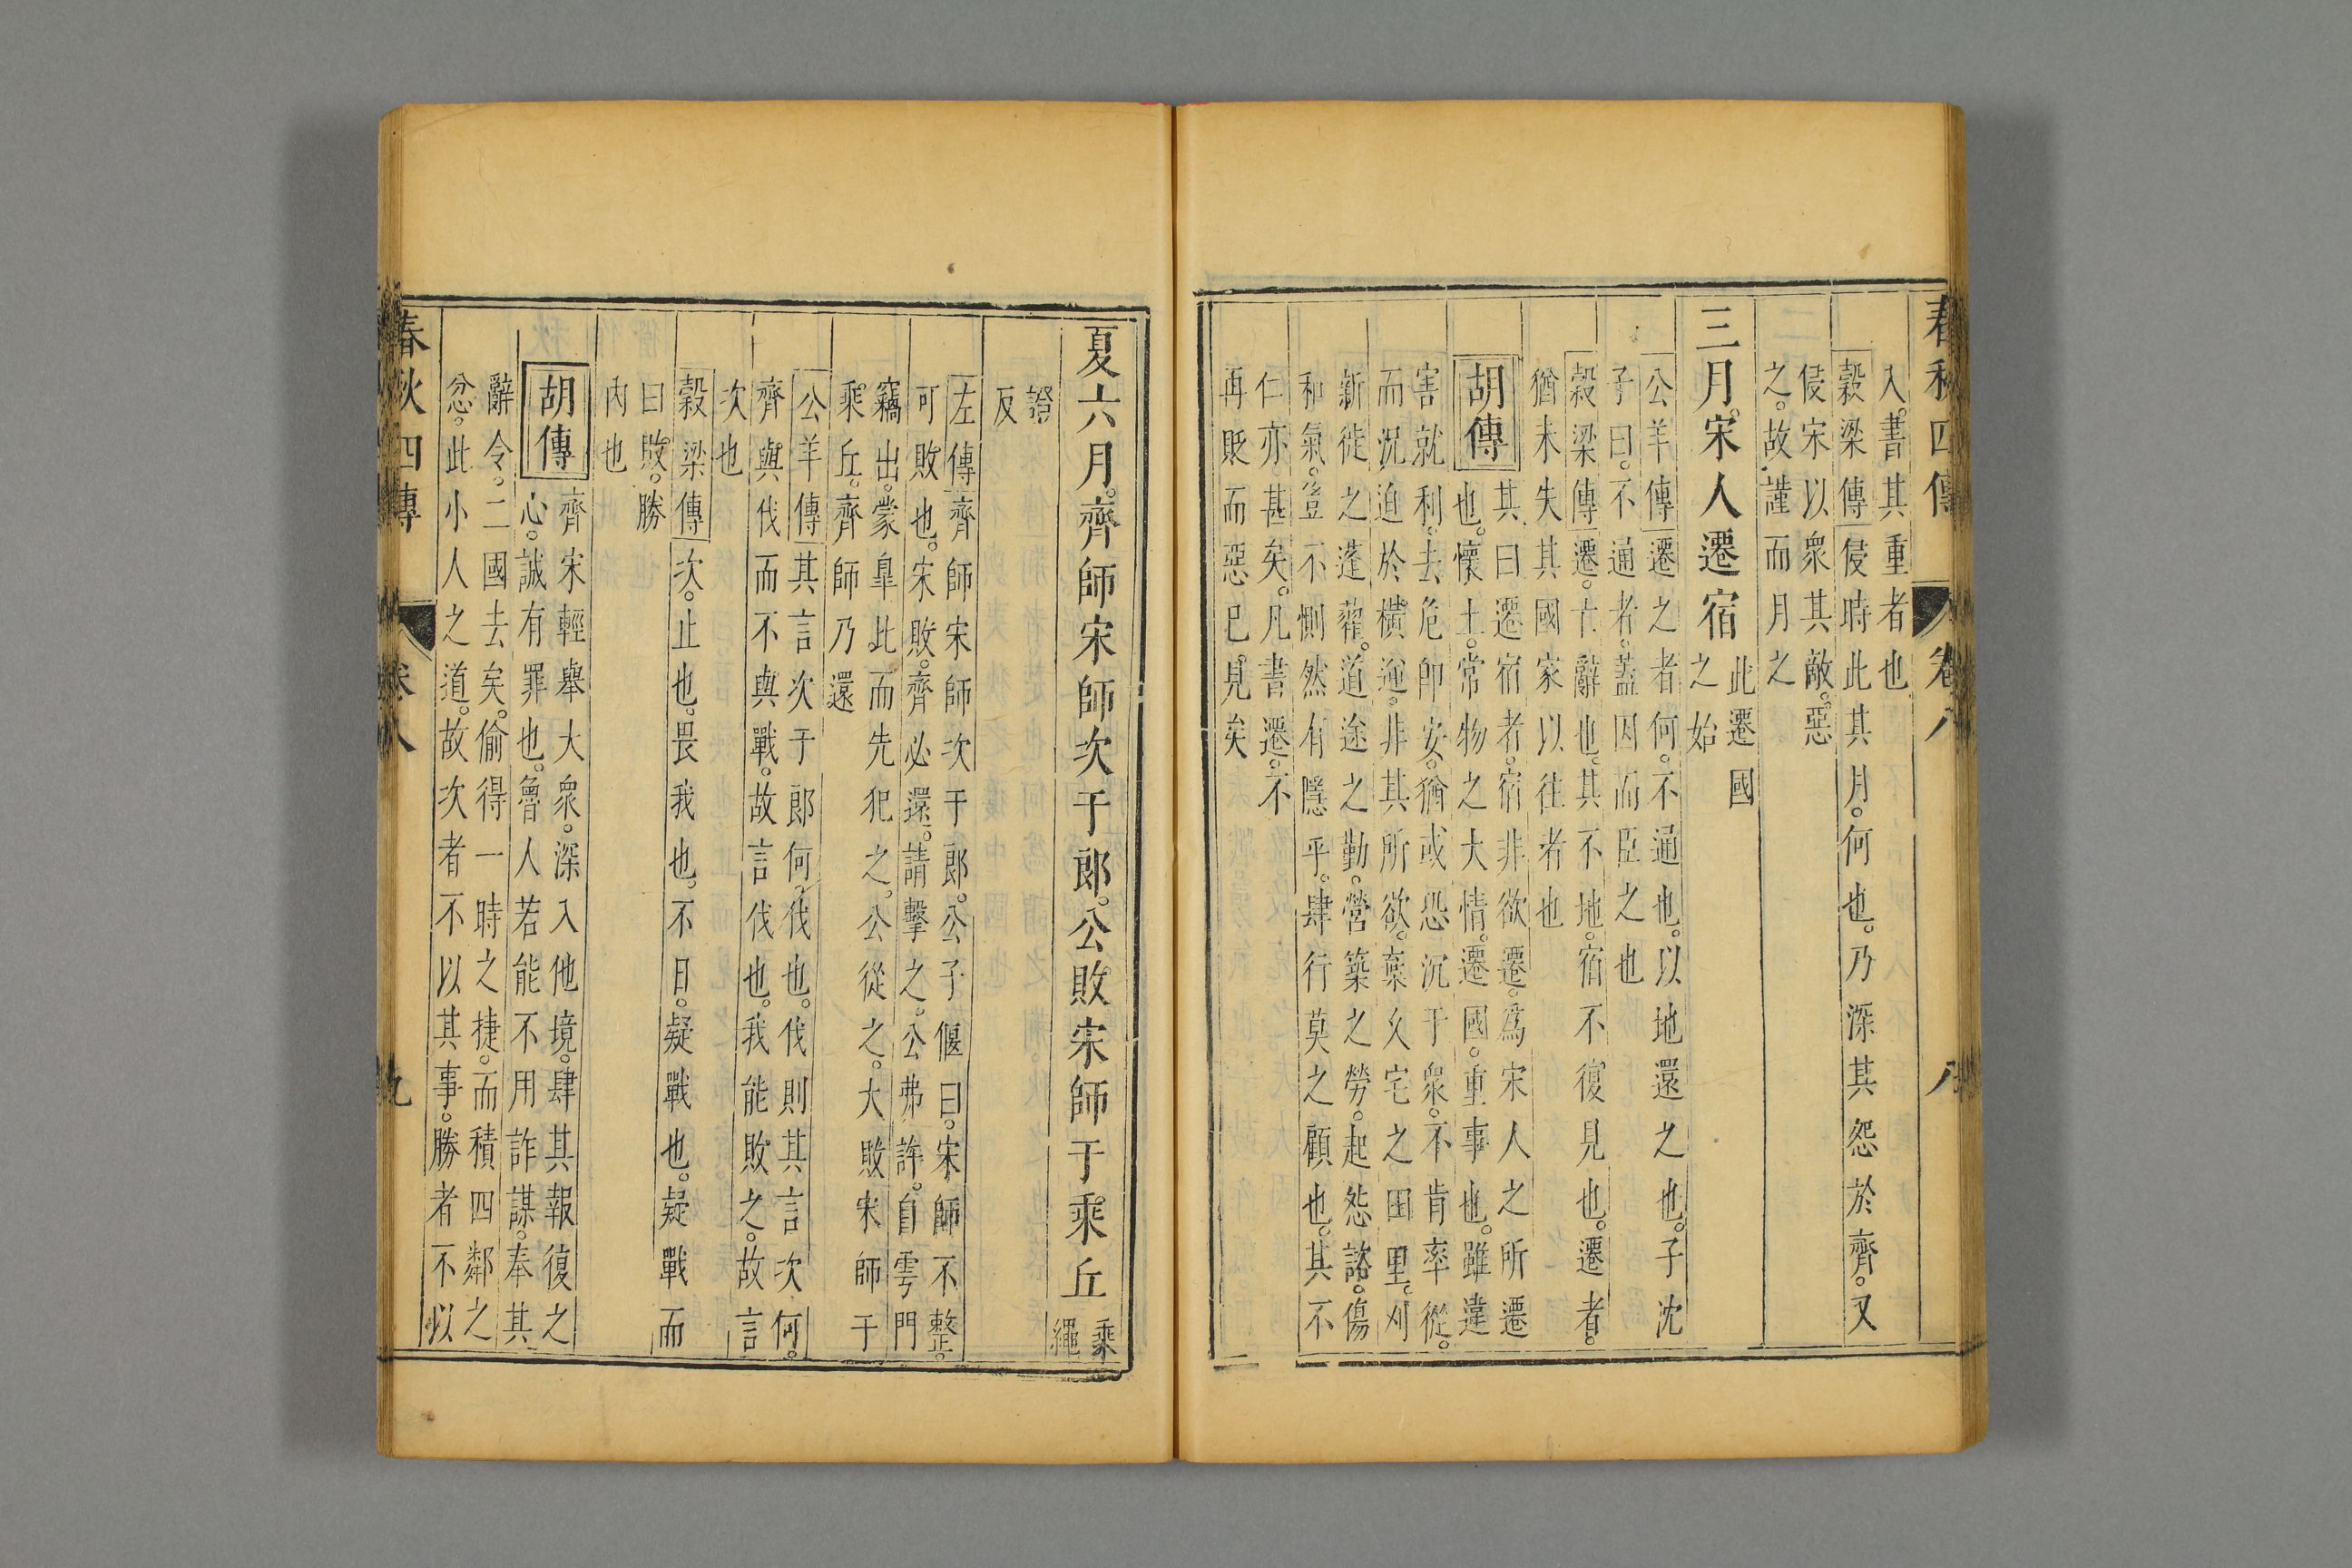 春秋四傳 卷八 八
入。書其重者也
穀梁傳侵時此其月。何也。乃深其怨於齊。又
侵宋以衆其敵。惡
之。故謹而月之
三月。宋人遷宿
此遷國
之始
公羊傳遷之者何。不通也。以地還之也。子沈
子曰。不通者。蓋因而臣之也
穀梁傳遷。亡辭也。其不地。宿不復見也。遷者。
猶未失其國家以往者也
胡傳
其曰遷宿者。宿非欲遷。爲宋人之所遷
也。懷土。常物之大情。遷國。重事也。雖違
害就利。去危卽安。猶或恐沉于衆。不肯率從。
而況迫於橫逆。非其所欲。棄久宅之田里。刈
新徙之蓬藋。道途之勤。營築之勞。起怨諮。傷
和氣。豈不惻然有隱乎。肆行莫之顧也。其不
仁亦甚矣。凡書遷。不
再貶而惡已見矣
夏六月。齊師宋師次于郎。公敗宋師于乘丘
乘
繩
證
反
左傳齊師宋師次于郎。公子偃曰。宋師不整。
可敗也。宋敗。齊必還。請擊之。公弗許。自雩門
竊出。蒙臯比而先犯之。公從之。大敗宋師于
乘丘。齊師乃還
公羊傳其言次于郎何。伐也。伐則其言次何。
齊與伐而不與戰。故言伐也。我能敗之。故言
次也
穀梁傳次。止也。畏我也。不日。疑戰也。疑戰而
曰敗。勝
內也
胡傳
齊宋輕舉大衆。深入他境。肆其報復之
心。誠有罪也。魯人若能不用詐謀。奉其
辭令。二國去矣。偷得一時之捷。而積四鄰之
忿。此小人之道。故次者不以其事。勝者不以
春秋四傳 卷八 九